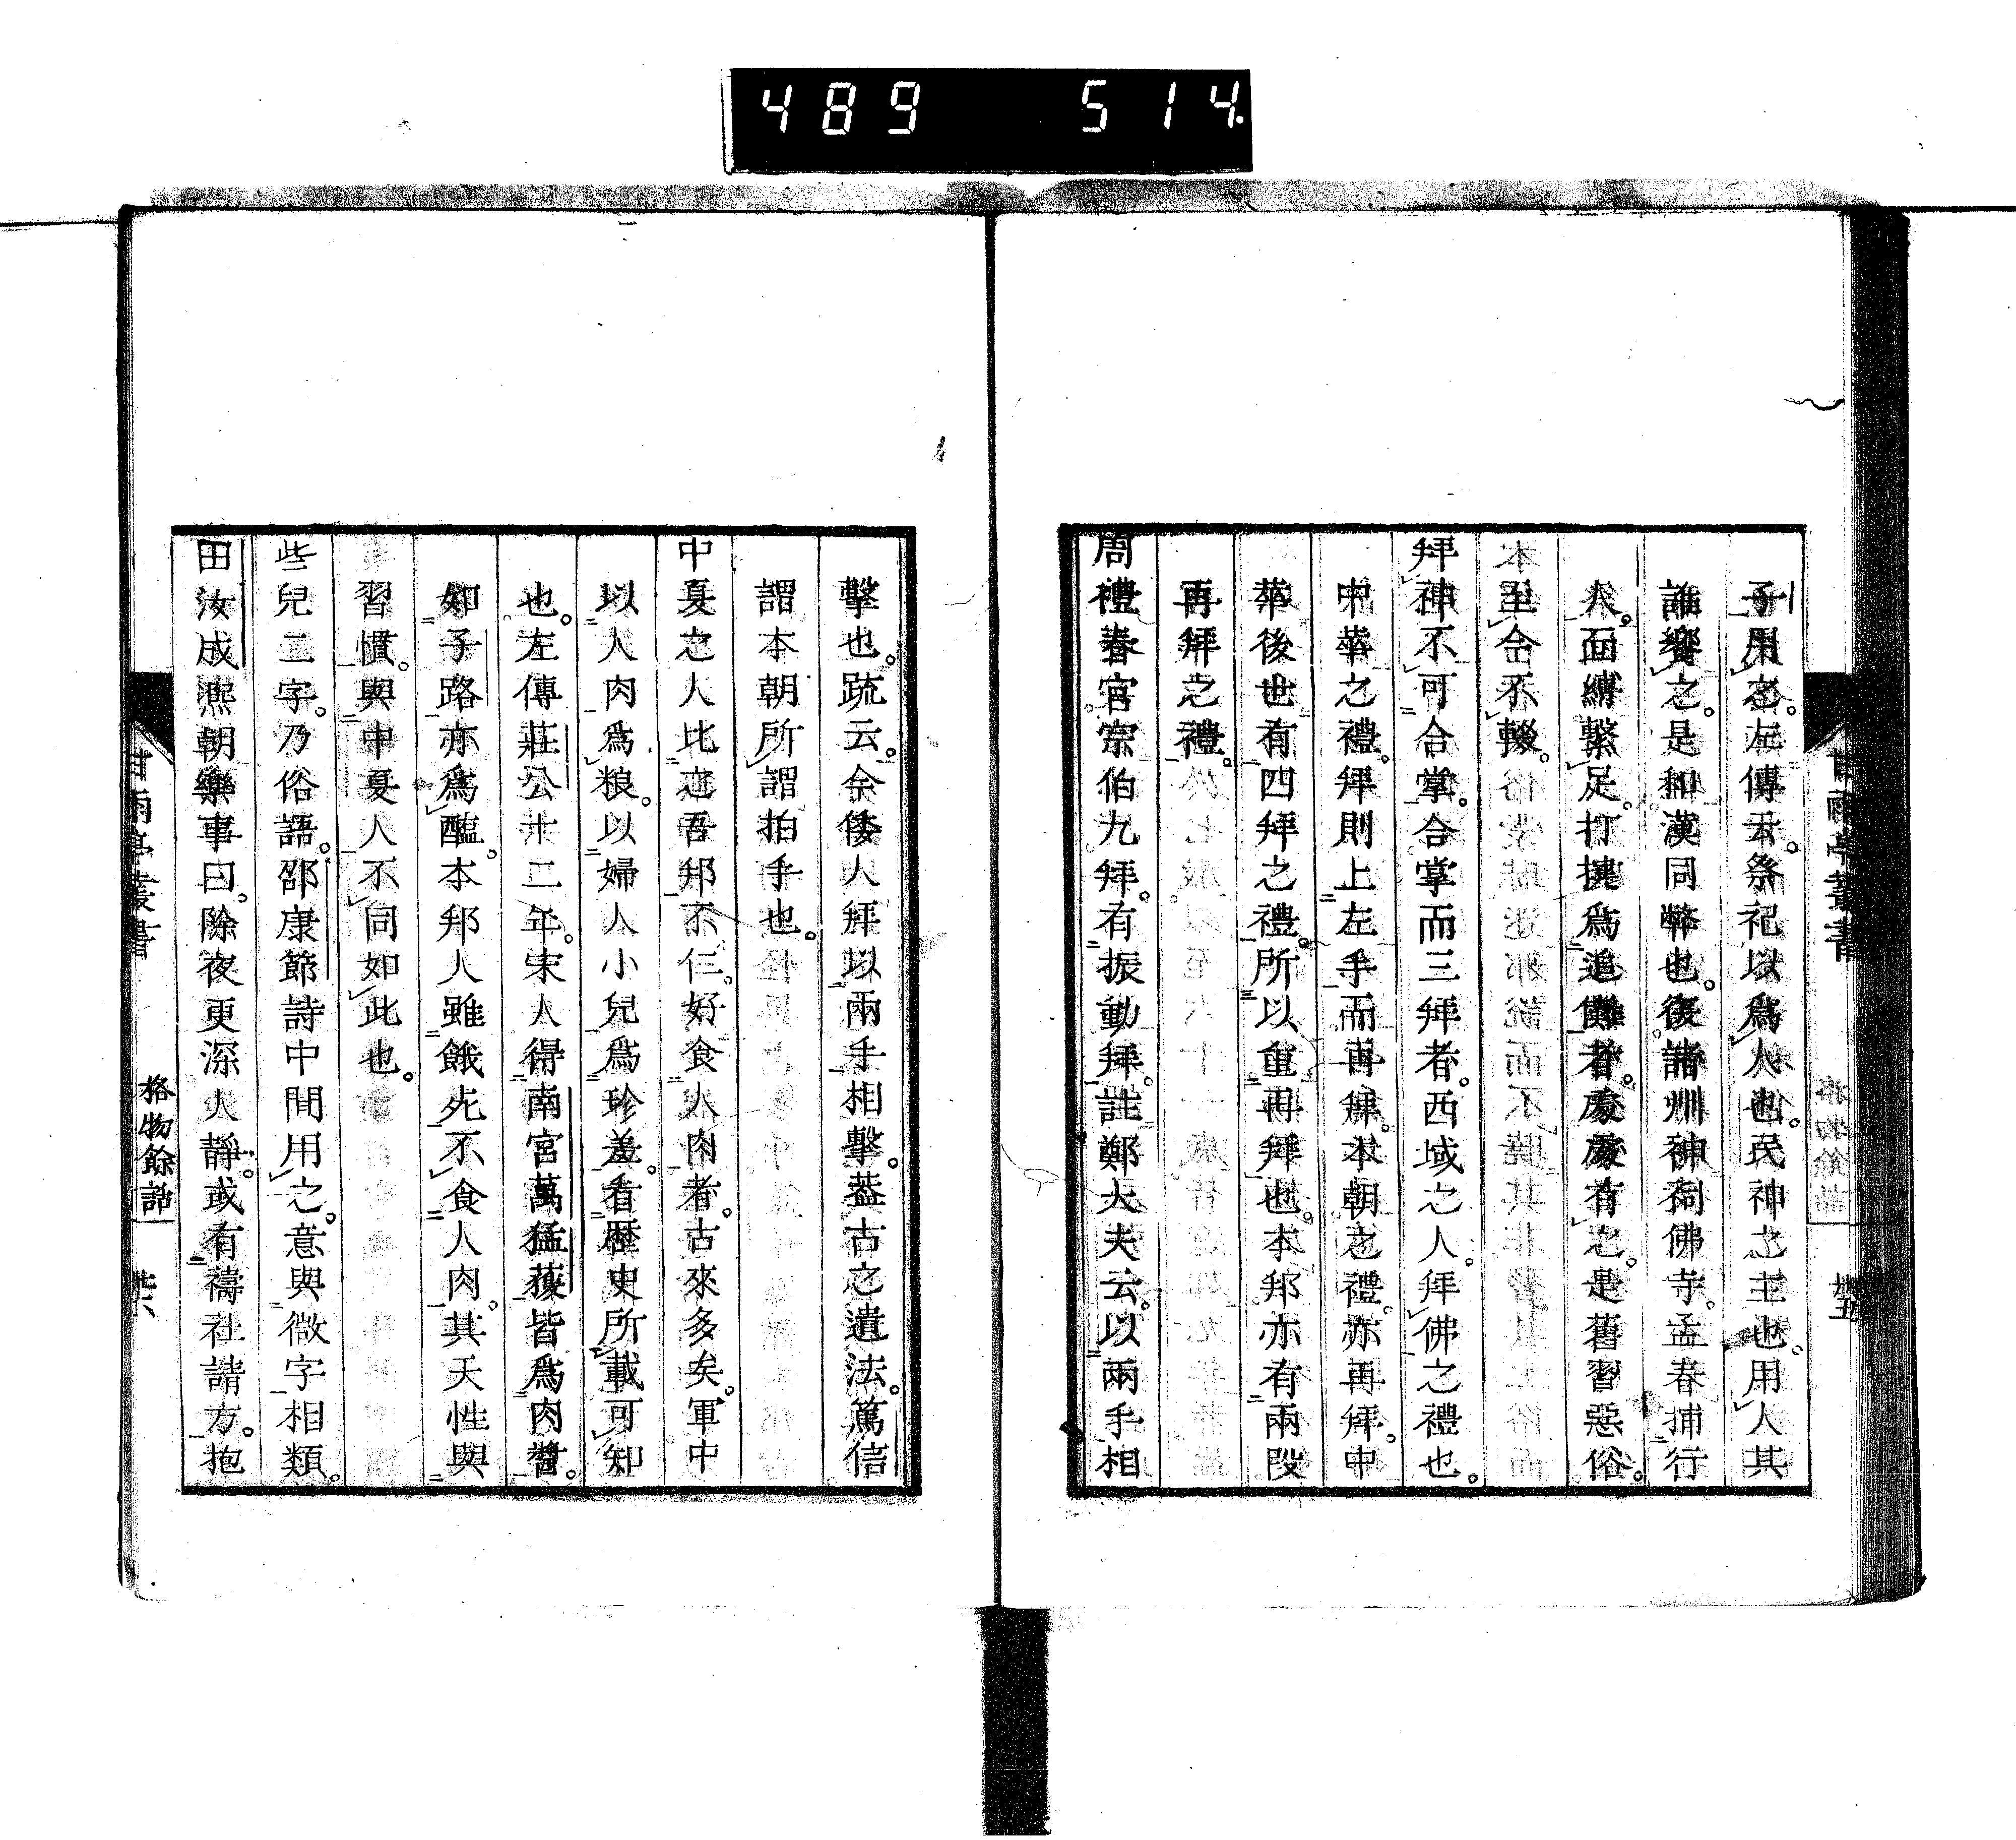 489 514.
子用之。左傳云。祭祀以爲人也。民神之主也。用人其
誰饗之。是和漢同弊也。後諸州神祠佛寺。孟春捕行
人。面縛繫足。打擲爲追儺者。處處有之。是舊習惡俗。
至今不輟。
拜神不可合掌。合掌而三拜者。西域之人。拜佛之禮也。
中華之禮。拜則上左手而再拜。本朝之禮。亦再拜。中
華後世有四拜之禮。所以重再拜也。本邦亦有兩段
再拜之禮。
周禮春官宗伯九拜。有振動拜。註鄭大夫云。以兩手相
甘雨亭叢書
格物餘話
擊也。疏云。今倭人拜以兩手相擊。蓋古之遺法。篤信
謂本朝所謂拍手也。
中夏之人比之吾邦不仁。好食人肉者。古來多矣。軍中
以人肉爲粮。以婦人小兒爲珍羞。看歷史所載可知
也。左傳莊公卄二年。宋人得南宮萬猛獲皆爲肉醬。
如子路亦爲醢。本邦人雖餓死不食人肉。其天性與
習慣。與中夏人不同如此也。
些兒二字。乃俗語。邵康節詩中間用之。意與微字相類。
田汝成熙朝樂事曰。除夜更深人靜。或有禱社請方。抱
甘雨亭叢書
格物餘話